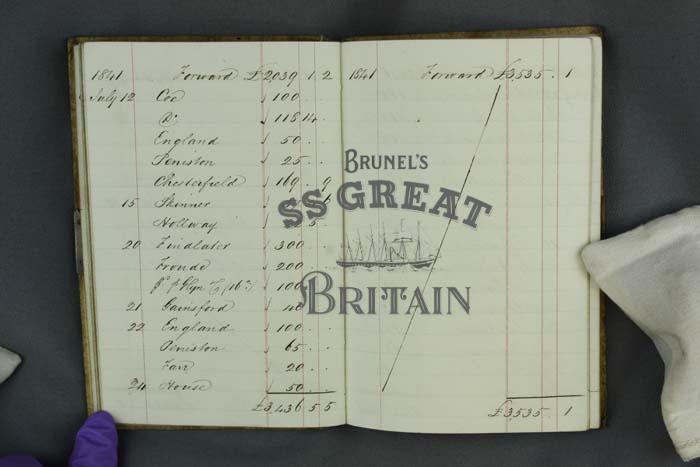 1841 Forward £2,039 1 2
July 12 Cox √ 100 . .
Do √ 118 14 .
England √ 50 . .
Peniston √ 25 . .
Chesterfield √ 169 . 9
15 Skinner √
Hollway √ 5
20 Findlater √ 300
Froude √ 200
√ 100
21 Gainsford √ 40
22 England √ 100 . .
Peniston √ 65 . .
Farr √ 20 . .
24 House √ 50 . .
£3,436 5 5
1841 Forward £3,535 . 1
£3,535 . 1
BRUNEL'S
SS GREAT
BRITAIN